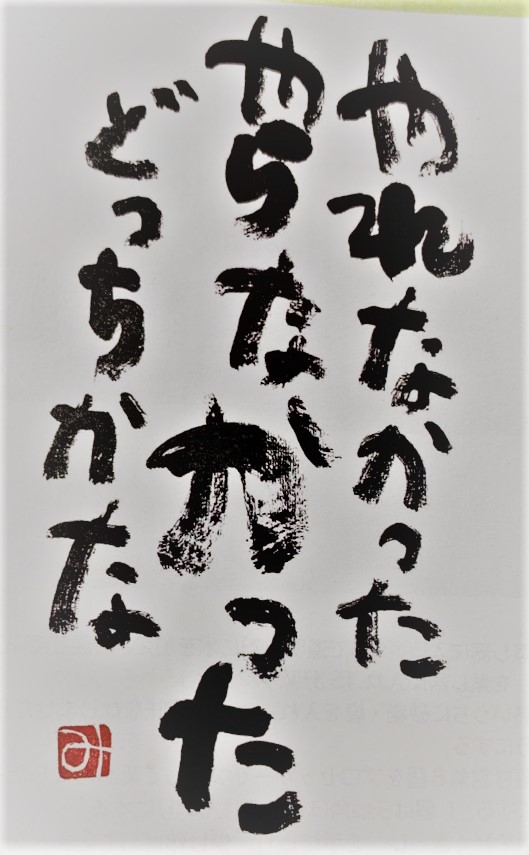 やれなかった
やらなかった
どっちかな
み